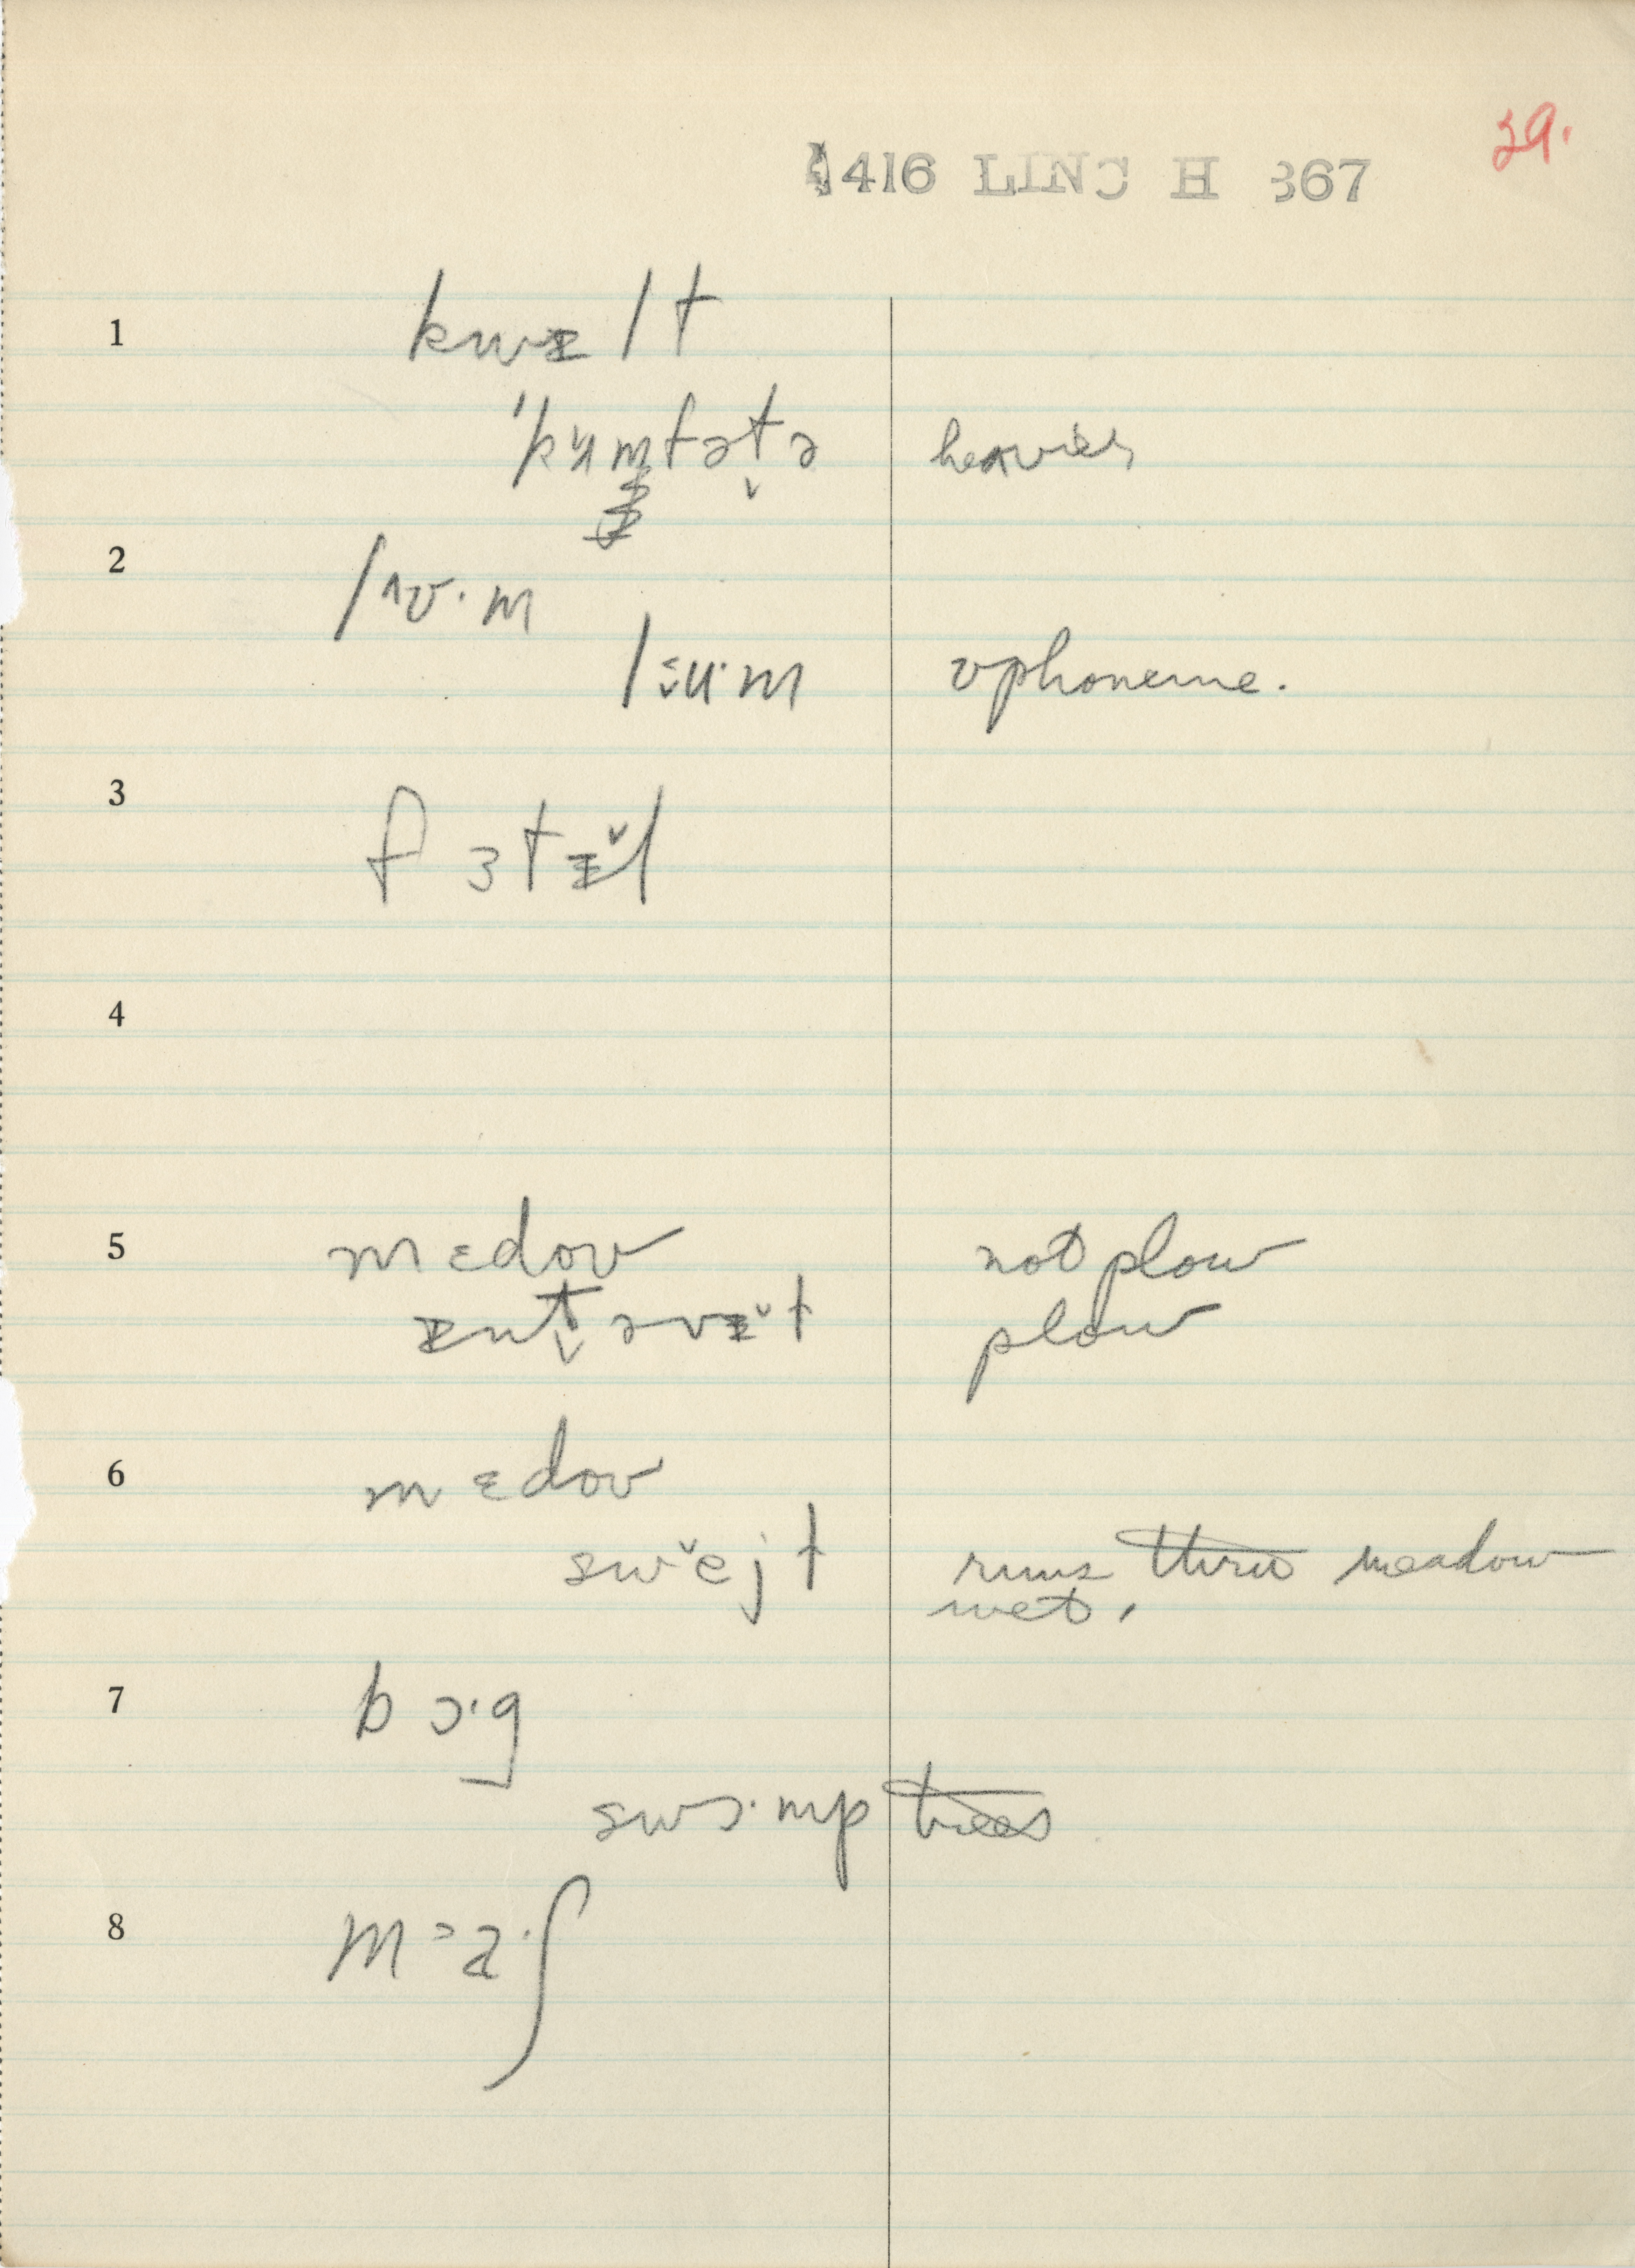 29.
416 LINC H 367
1 kwɪlt
'kʉmfətə heavier
2 lʌʊ·m
lɪu·m ʊ phoneme.
3 fɜtɪl
4
5 mɛdoʊ not plow
ɪntəvɪt plow
6 mɛdoʊ
swejt runs thru meadow
wet,
7 bɔ·g
swɔ·mp trees
8 mɔa·ʃ